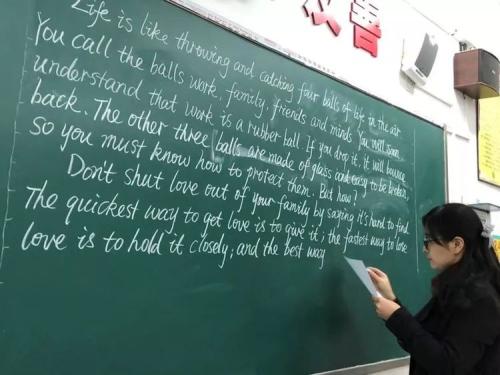 Life is like throwing and catching four balls of life in the air
You call the balls work, family, friends and minds. You will soon
understand that work is a rubber ball. If you drop it, it will bounce
back. The other three balls are made of glass and easy to be broken,
so you must know how to protect them. But how?
Don't shut love out of your family by saying it's hard to find.
The quickest way to get love is to give it; the fastest way to lose
love is to hold it closely; and the best way
善